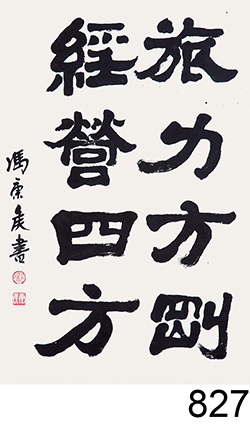 旅力方剛
經營四方
馮康侯書
827